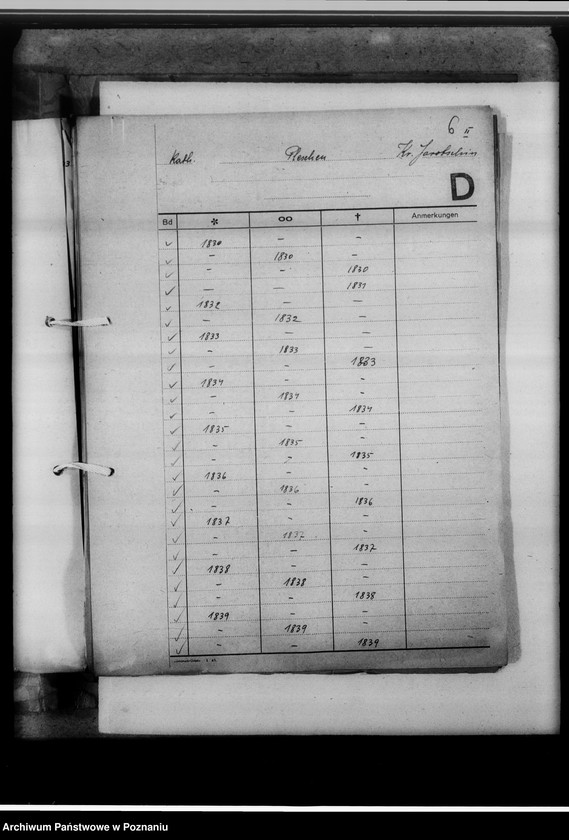 6 II
Kath. Pleschen Kr. Jarotschin
D
Bd * oo † Anmerkungen
✓ 1830 – –
✓ – 1830 –
✓ – – 1830
✓ – – 1831
✓ 1832 – –
✓ – 1832 –
✓ 1833 – –
✓ – 1833 –
✓ – – 1833
✓ 1834 – –
✓ – 1834 –
✓ – – 1834
✓ 1835 – –
✓ – 1835 –
✓ – – 1835
✓ 1836 – –
✓ – 1836 –
✓ – – 1836
✓ 1837 – –
✓ – 1837 –
✓ – – 1837
✓ 1838 – –
✓ – 1838 –
✓ – – 1838
✓ 1839 – –
✓ – 1839 –
✓ – – 1839
Archiwum Państwowe w Poznaniu